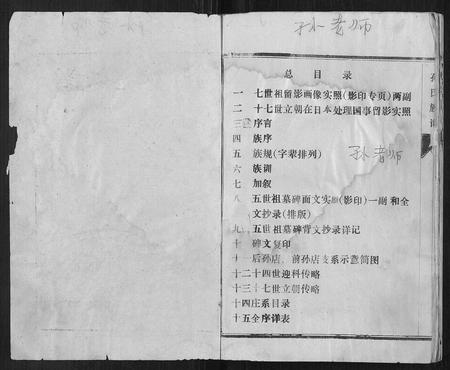 孙老师
总目录
一 七世祖留影画像实照(影印专页)两副
二 十七世立朝在日本处理国事留影实照
三 序言
四 族序
五 族规(字辈排列)
孙老师
六 族训
七 加叙
八 五世祖墓碑面文实照(影印)一副和全
文抄录(排版)
九 五世祖墓碑背文抄录详记
十 碑文复印
十一后孙店、前孙店支系示意简图
十二十四世迎科传略
十三十七世立朝传略
十四庄系目录
十五全序详表
孙氏族谱